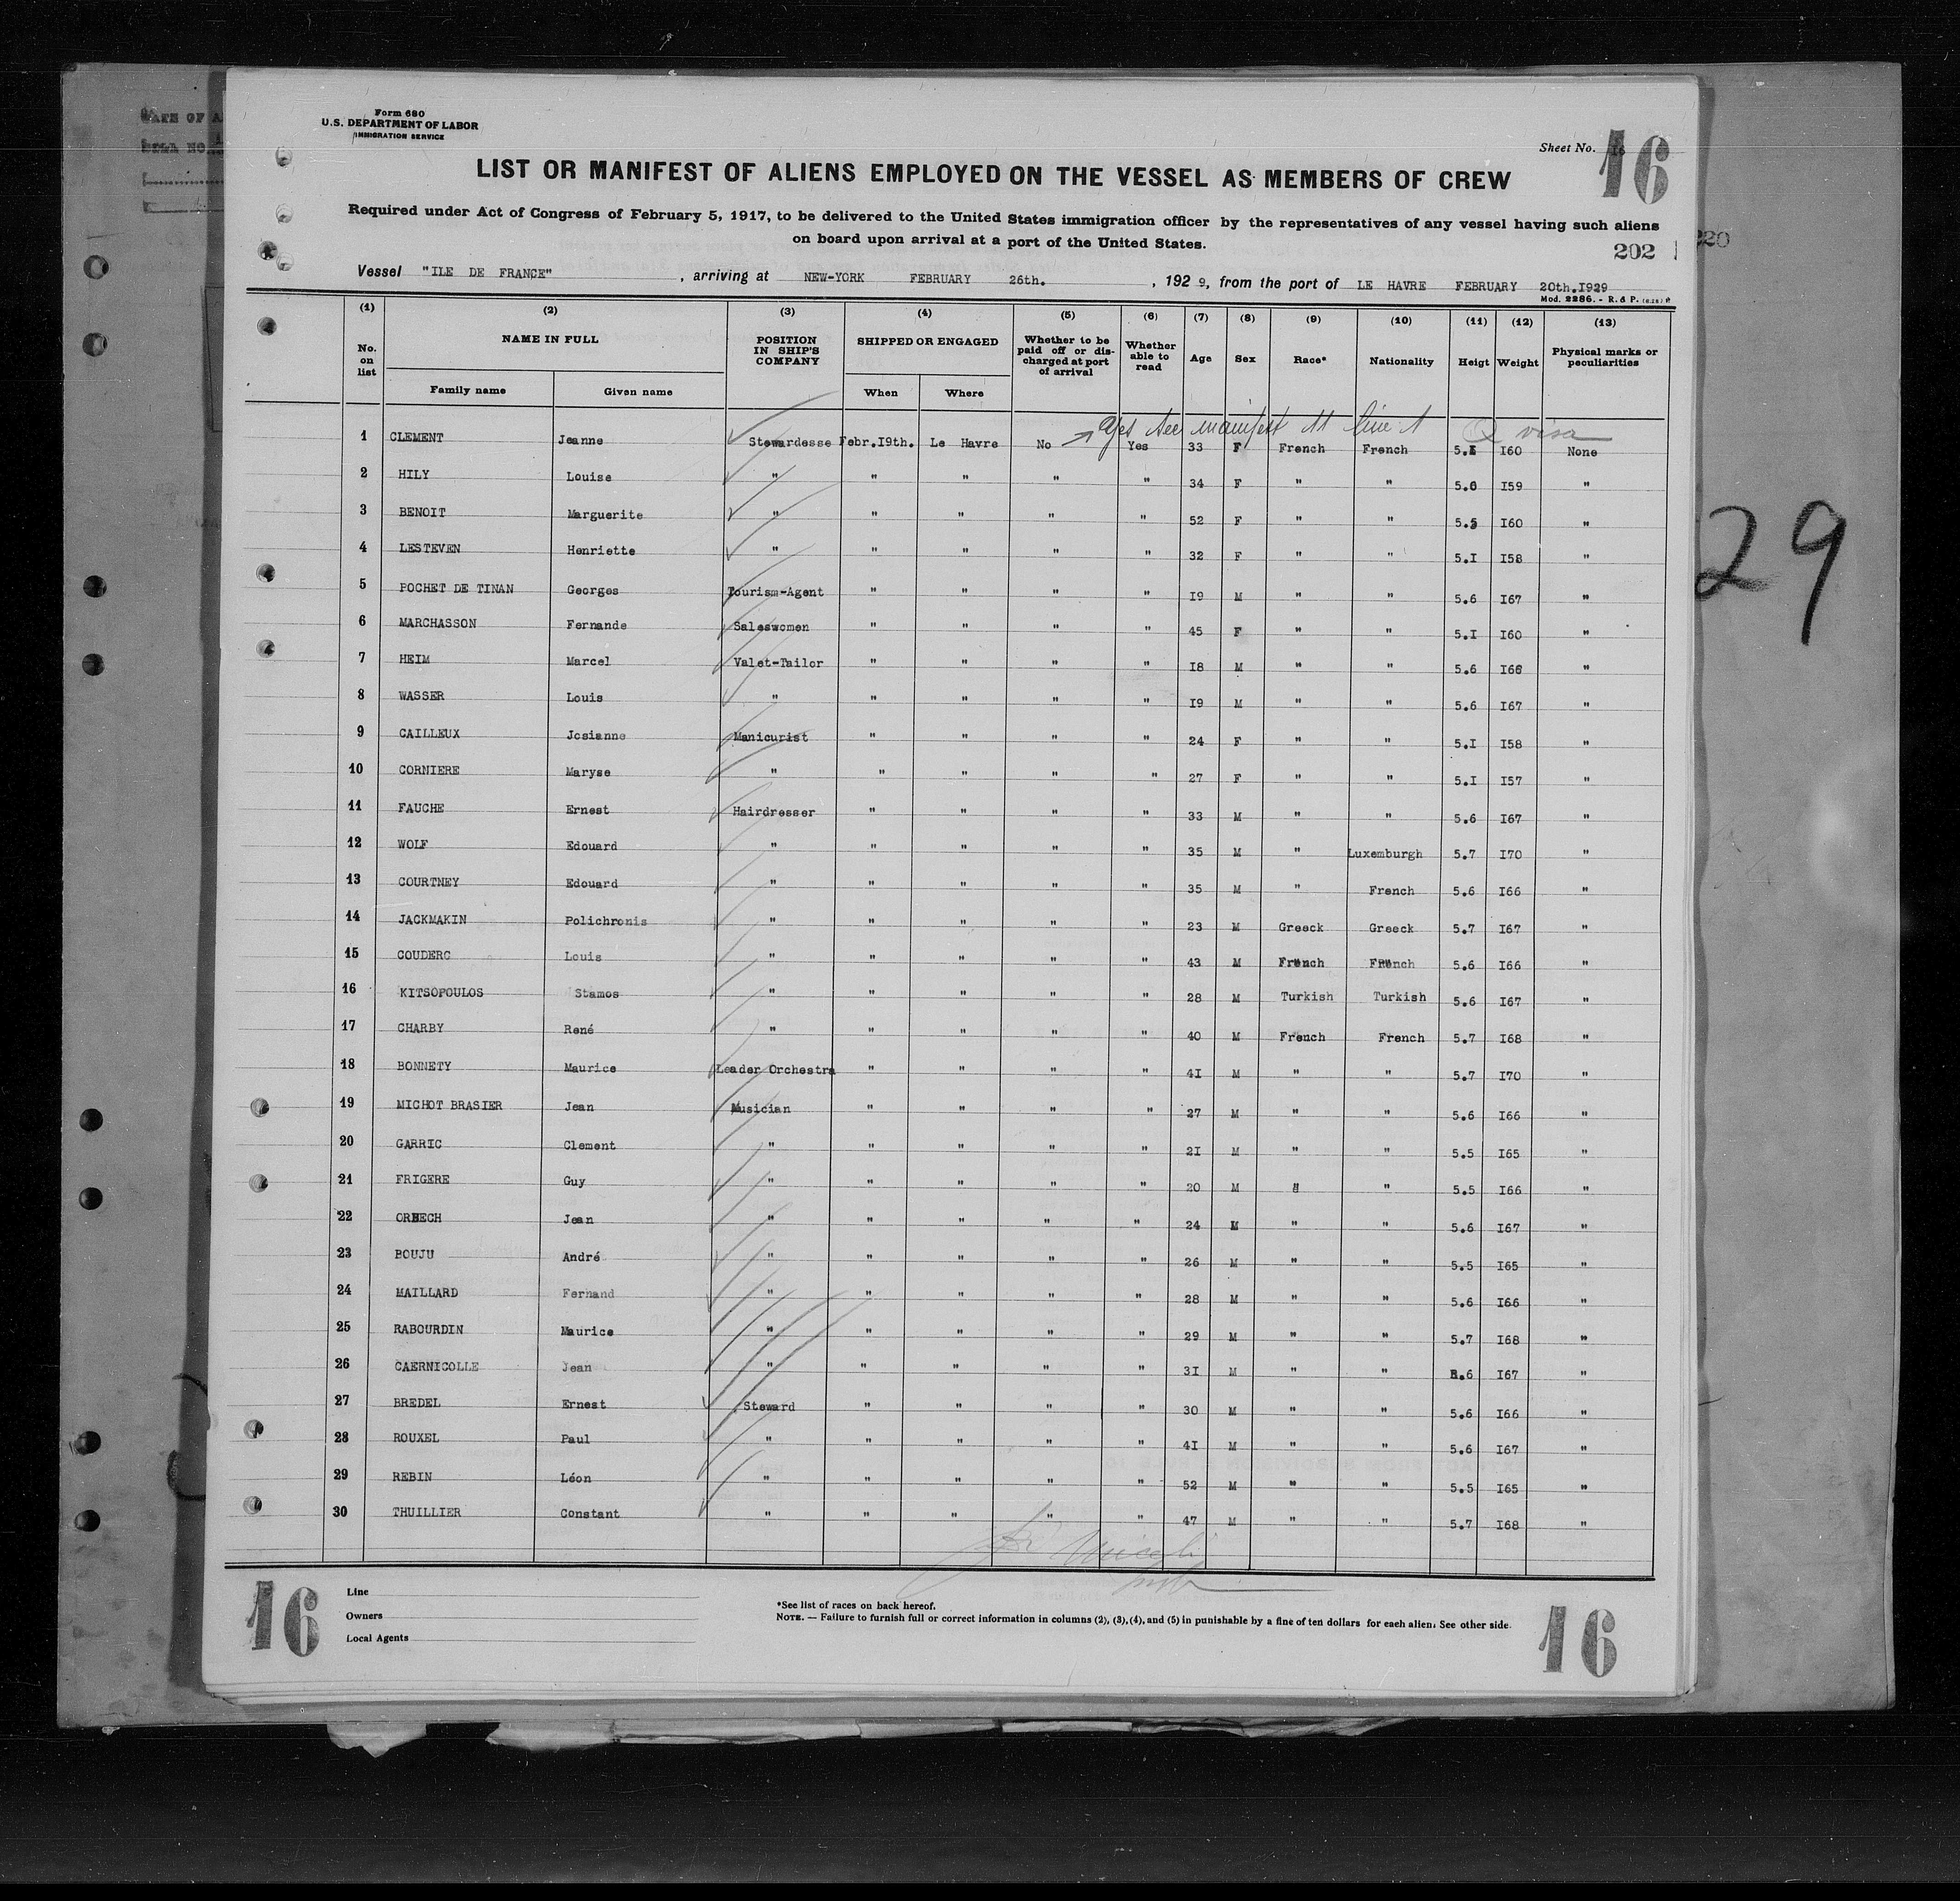 Form 680
U.S. DEPARTMENT OF LABOR
IMMIGRATION SERVICE
Sheet No. 16
16
LIST OR MANIFEST OF ALIENS EMPLOYED ON THE VESSEL AS MEMBERS OF CREW
Required under Act of Congress of February 5, 1917, to be delivered to the United States immigration officer by the representatives of any vessel having such aliens
on board upon arrival at a port of the United States.
202
Vessel "ILE DE FRANCE", arriving at NEW-YORK FEBRUARY 26th., 1929, from the port of LE HAVRE FEBRUARY 20th.I929
Mod. 2286. - R. & P.
(1) (2) (3) (4) (5) (6) (7) (8) (9) (10) (11) (12) (13)
No. on list NAME IN FULL Family name Given name POSITION IN SHIP'S COMPANY SHIPPED OR ENGAGED When Where Whether to be paid off or discharged at port of arrival Whether able to read Age Sex Race* Nationality Heigt Weight Physical marks or peculiarities
yes see manifest line visa
1 CLEMENT Jeanne Stewardesse Febr.I9th. Le Havre No Yes 33 F French French 5.I I60 None
2 HILY Louise " " " " " 34 F " " 5.0 I59 "
3 BENOIT Marguerite " " " " " 52 F " " 5.5 I60 "
4 LESTEVEN Henriette " " " " " 32 F " " 5.I I58 "
5 POCHET DE TINAN Georges Tourism-Agent " " " " I9 M " " 5.6 I67 "
6 MARCHASSON Fernande Saleswomen " " " " 45 F " " 5.I I60 "
7 HEIM Marcel Valet-Tailor " " " " I8 M " " 5.6 I66 "
8 WASSER Louis " " " " " I9 M " " 5.6 I67 "
9 CAILLEUX Josianne Manicurist " " " " 24 F " " 5.I I58 "
10 CORNIERE Maryse " " " " " 27 F " " 5.I I57 "
11 FAUCHE Ernest Hairdresser " " " " 33 M " " 5.6 I67 "
12 WOLF Edouard " " " " " 35 M " Luxemburgh 5.7 I70 "
13 COURTNEY Edouard " " " " " 35 M " French 5.6 I66 "
14 JACKMAKIN Polichronis " " " " " 23 M Greeck Greeck 5.7 I67 "
15 COUDERC Louis " " " " " 43 M French French 5.6 I66 "
16 KITSOPOULOS Stamos " " " " " 28 M Turkish Turkish 5.6 I67 "
17 CHARBY René " " " " " 40 M French French 5.7 I68 "
18 BONNETY Maurice Leader Orchestra " " " " 4I M " " 5.7 I70 "
19 MICHOT BRASIER Jean Musician " " " " 27 M " " 5.6 I66 "
20 GARRIC Clement " " " " " 2I M " " 5.5 I65 "
21 FRIGERE Guy " " " " " 20 M " " 5.5 I66 "
22 ORBECH Jean " " " " " 24 M " " 5.6 I67 "
23 BOUJU André " " " " " 26 M " " 5.5 I65 "
24 MAILLARD Fernand " " " " " 28 M " " 5.6 I66 "
25 RABOURDIN Maurice " " " " " 29 M " " 5.7 I68 "
26 CAERNICOLLE Jean " " " " " 3I M " " 5.6 I67 "
27 BREDEL Ernest Steward " " " " 30 M " " 5.6 I66 "
28 ROUXEL Paul " " " " " 4I M " " 5.6 I67 "
29 REBIN Léon " " " " " 52 M " " 5.5 I65 "
30 THUILLIER Constant " " " " " 47 M " " 5.7 I68 "
29
16
Line
Owners
Local Agents
*See list of races on back hereof.
NOTE. — Failure to furnish full or correct information in columns (2), (3), (4), and (5) in punishable by a fine of ten dollars for each alien. See other side.
16